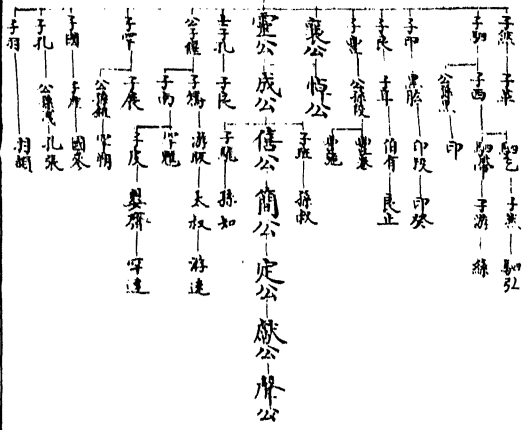 子然 子革 駟乞 子然 駟弘
子駟 子西 駟帶 子游 絲
公孫黑 印
子印 黑肱 印段 印癸
子良 子耳 伯有 良止
子豐 公孫段 豐卷
豐施
襄公 悼公
子班 孫叔
靈公 成公 僖公 簡公 定公 獻公 聲公
士子孔 子良 子駹 孫知
公子偃 子蟜 游眅 太叔 游速
子南 罕魋
子罕 子展 子皮 嬰齊 罕達
公孫鉏 罕朔
子國 子產 國參
子孔 公孫洩 孔張
子羽 羽頡